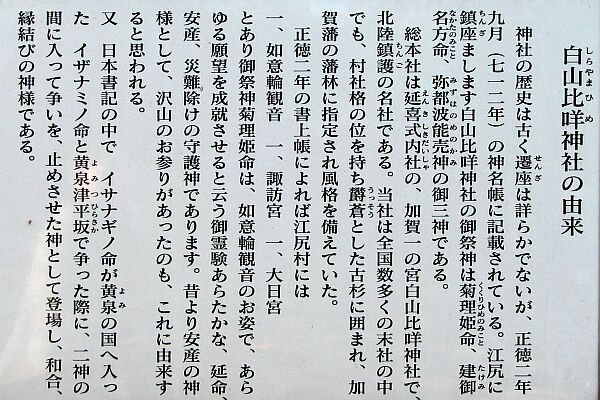 白山比咩神社の由来
しらやまひめ
神社の歴史は古く遷座は詳らかでないが、正徳二年
せんざ
九月（七一二年）の神名帳に記載されている。江尻に
鎮座まします白山比咩神社の御祭神は菊理姫命、建御
ちんざ
くくりひめのみこと
たけみ
名方命、弥都波能売神の御三神である。
なかたのみこと
みずはのめのかみ
総本社は延喜式内社の、加賀一の宮白山比咩神社で、
えんきしきだいしゃ
北陸鎮護の名社である。当社は全国数多くの末社の中
ちんご
でも、村社格の位を持ち爵蒼とした古杉に囲まれ、加
うっそう
賀藩の藩林に指定され風格を備えていた。
正徳二年の書上帳によれば江尻村には
一、如意輪観音　一、諏訪宮　一、大日宮
とあり御祭神菊理姫命は、如意輪観音のお姿で、あら
ゆる願望を成就させると云う御霊験あらたかな、延命、
安産、災難除けの守護神であります。昔より安産の神
様として、沢山のお参りがあったのも、これに由来す
ると思われる。
又　日本書記の中で　イサナギノ命が黄泉の国へ入っ
よみ
た　イザナミノ命と黄泉津平坂で争った際に、二神の
よみつひらさか
間に入って争いを、止めさせた神として登場し、和合、
縁結びの神様である。